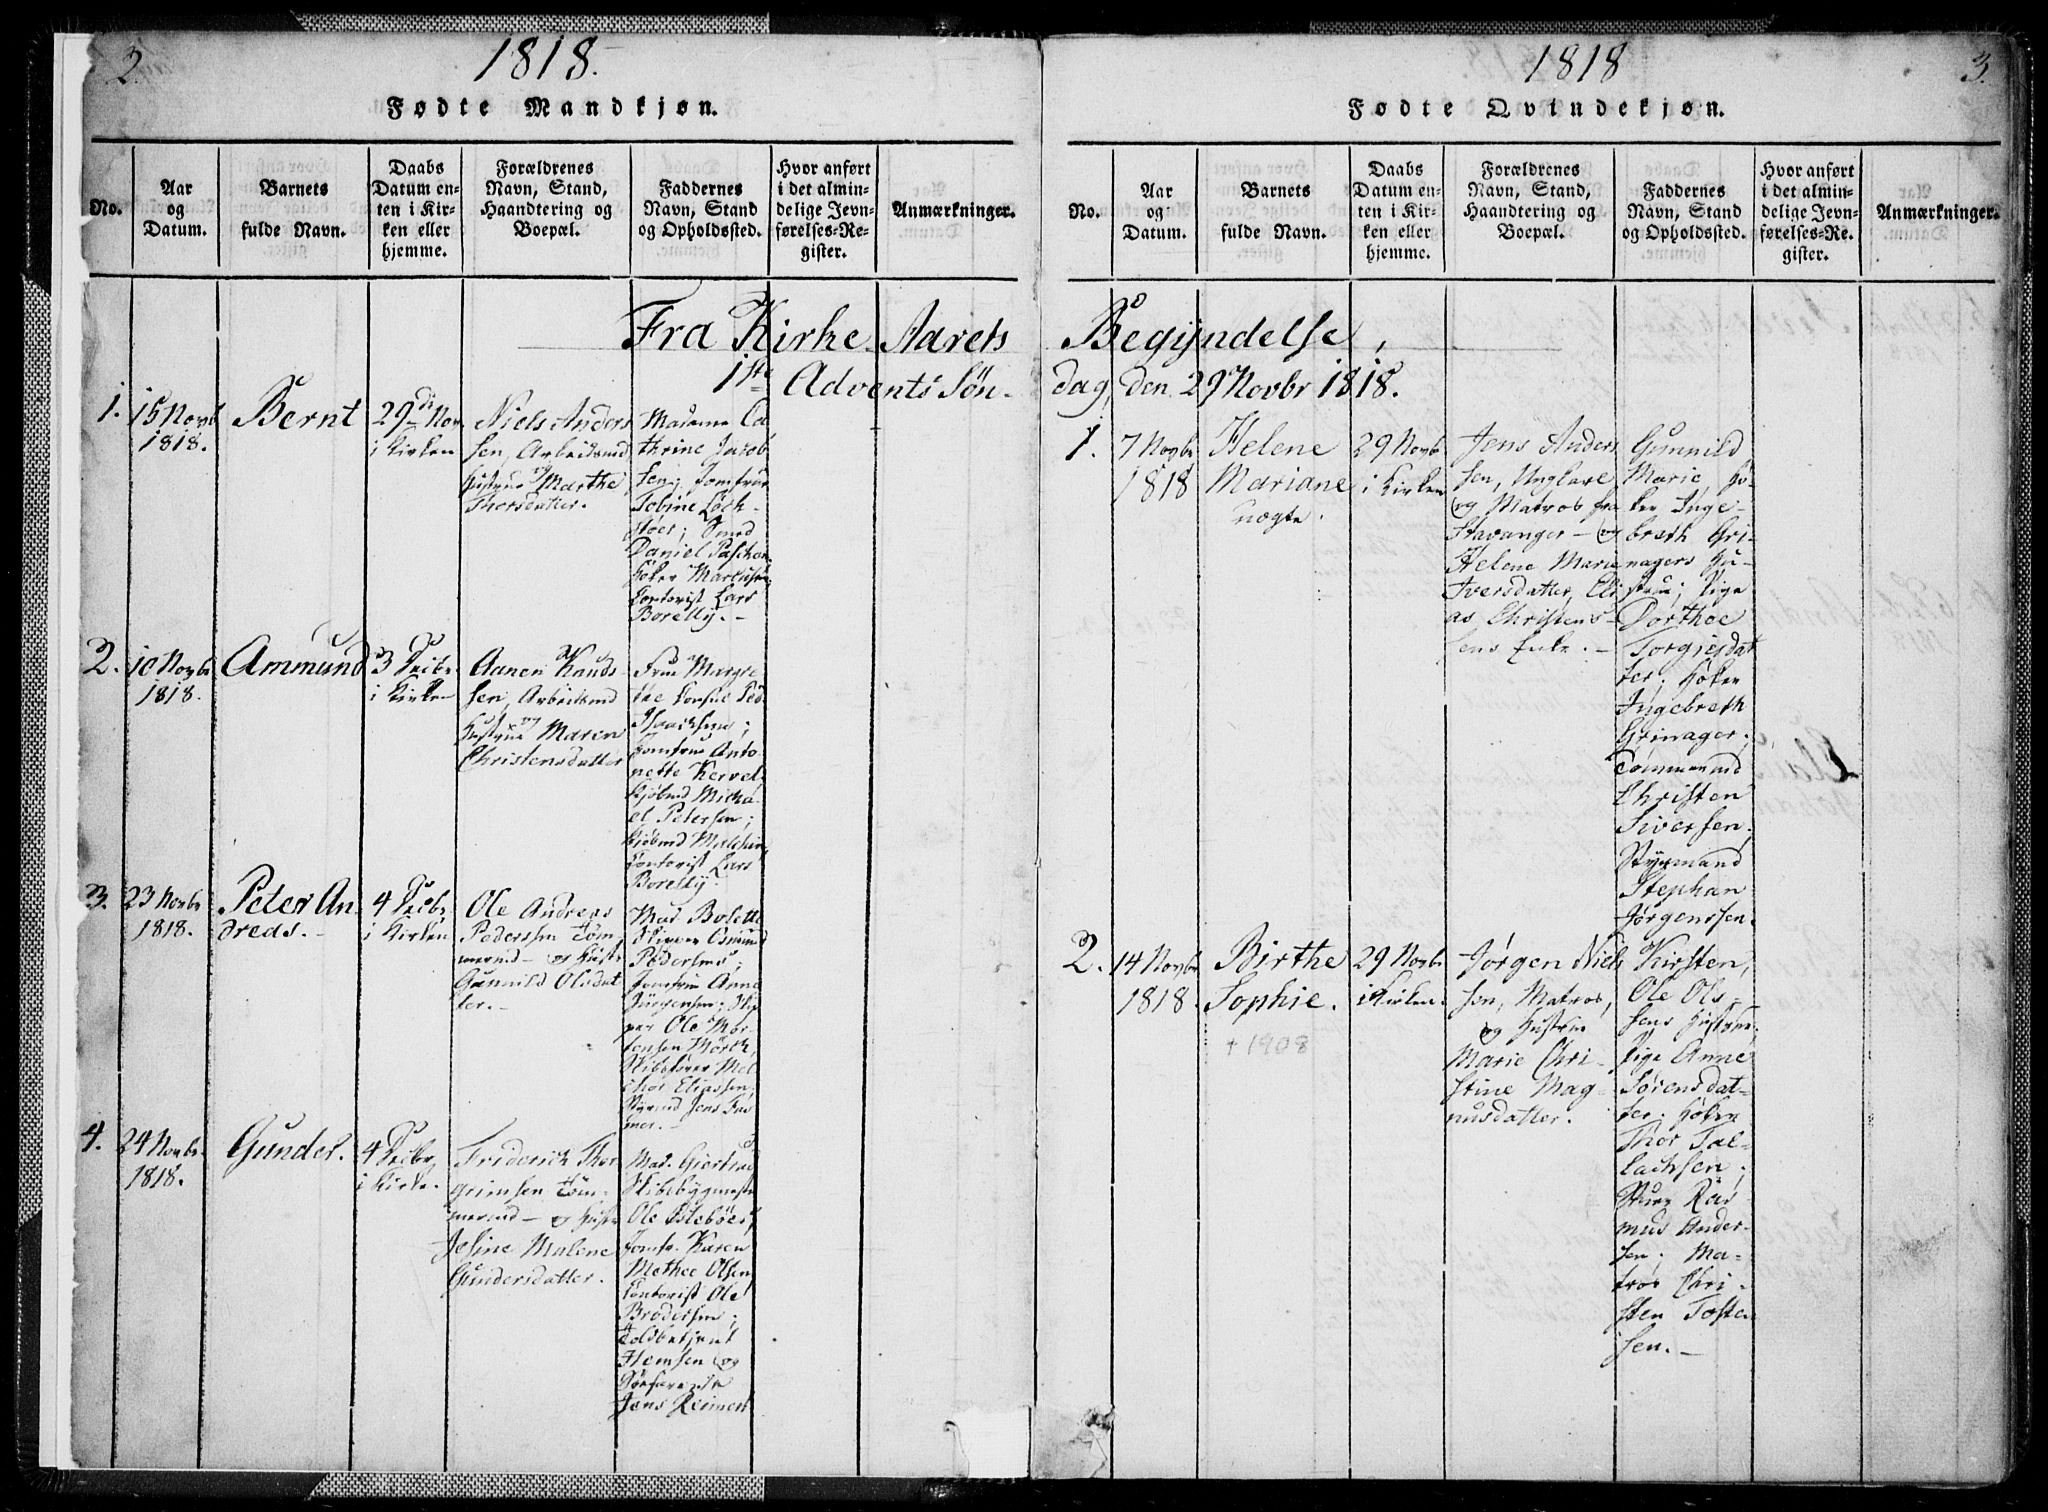 2.
1818.
Fødte Mandkjøn.
No.
Aar
og
Datum.
Barnets
fulde Navn.
Daabs
Datum en-
ten i Kir-
ken eller
hjemme.
Forældrenes
Navn, Stand,
Haandtering og
Boepæl.
Faddernes
Navn, Stand
og Opholdssted.
Hvor anført
i det almin-
delige Jevn-
førelses-Re-
gister.
Anmærkninger.
Fra Kirke-Aarets
1ste Advents Søn-
1.
15 Novb
1818.
Bernt
29de Nov.
i Kirken
Niels Anders
sen, Arbeidsmd
og Hustrue Marthe
Thorsdatter.
Madame Ca
thrine Jacob
sen; Jomfrue
Tobine Loch-
støer; Smed
Daniel Pascha
Høker Marcusen
Contorist Lars
Borelly.-
2.
10 Novbr
1818.
Ammund
3 Decbr.
i Kirken
Aanen Knuds
sen, Arbeidsmd
og Hustrue Maren
Christensdatter
Frue Margre
the Consul
Isaachsens;
Jomfrue Anto
nette Kervel.
Kjøbmd Micha
el Petersen;
Kjøbmd
Contorist Lars
Borelly.
3.
23 Novbr
1818.
Peter An
dreas.-
4 Decbr.
i Kirken
Ole Andreas
Pedersen Töm
mermd - og Hustr
Gunnild Olsdat
ter.-
Mad. Bolette
Skipper Osmund
Pedersens;
Jomfrue Anne
Jürgensen; Skip
per Ole Mor
tensen Mörch,
Skibsfører Mel
chior Eliassen,
Styrmd Jens Fas
mer.-
4.
24 Novbr.
1818.
Gunder.
4 Decbr,
i Kirke.
Friderich Thor
grimsen Töm-
mermd - og Hustr
Jesine Malene
Gundersdatter.
Mad. Giertrud
Skibsbygmester
Ole Ostebøes,
Jomfr. Karen
Mathee Olsen
Contorist Ole
Brodersen;
Toldbetjent
Hemsen og
Søefarende
Jens Reinert
1818
3.
Fødte Qvindekjøn.
No.
Aar
og
Datum.
Barnets
fulde Navn.
Daabs
Datum en-
ten i Kir-
ken eller
hjemme.
Forældrenes
Navn, Stand,
Haandtering og
Boepæl.
Faddernes
Navn, Stand
og Opholdssted.
Hvor anført
i det almin-
delige Jevn-
førelses-Re-
gister.
Anmærkninger.
Begyndelse,
dag, den 29 Novbr 1818.
1.
7 Novbr
1818
Helene
Mariane
uægte.
29 Novbr
i Kirken
Jens Anders
sen, Ungkarl
og Matros fra
Stavanger - og
Helene Marie
Iversdatter, Eli
as Christens-
sens Enke.-
Gunnild
Marie, Hø-
ker Inge-
breth Gri-
nagers Hu-
strue; Pige
Dorthee
Torgiesdat
ter; Høker
Ingebreth
Grinager;
Tømmermd
Christen
Siversen;
Styrmand
Stephan
Jørgenssen.
2.
14 Novbr
1818.
Birthe
Sophie.
† 1908
29 Novbr
i Kirken.
Jørgen Niels
sen, Matros,
og Hustrue
Marie Chri-
stine Mag-
nusdatter.
Kirsten,
Ole Ols-
sens Hustrue;
Pige Anne
Sørensdat-
ter; Høker
Thor Tal-
lachsen;
Ras
mus Ander-
sen; Ma-
tros Chri-
sten Tosten
sen.-